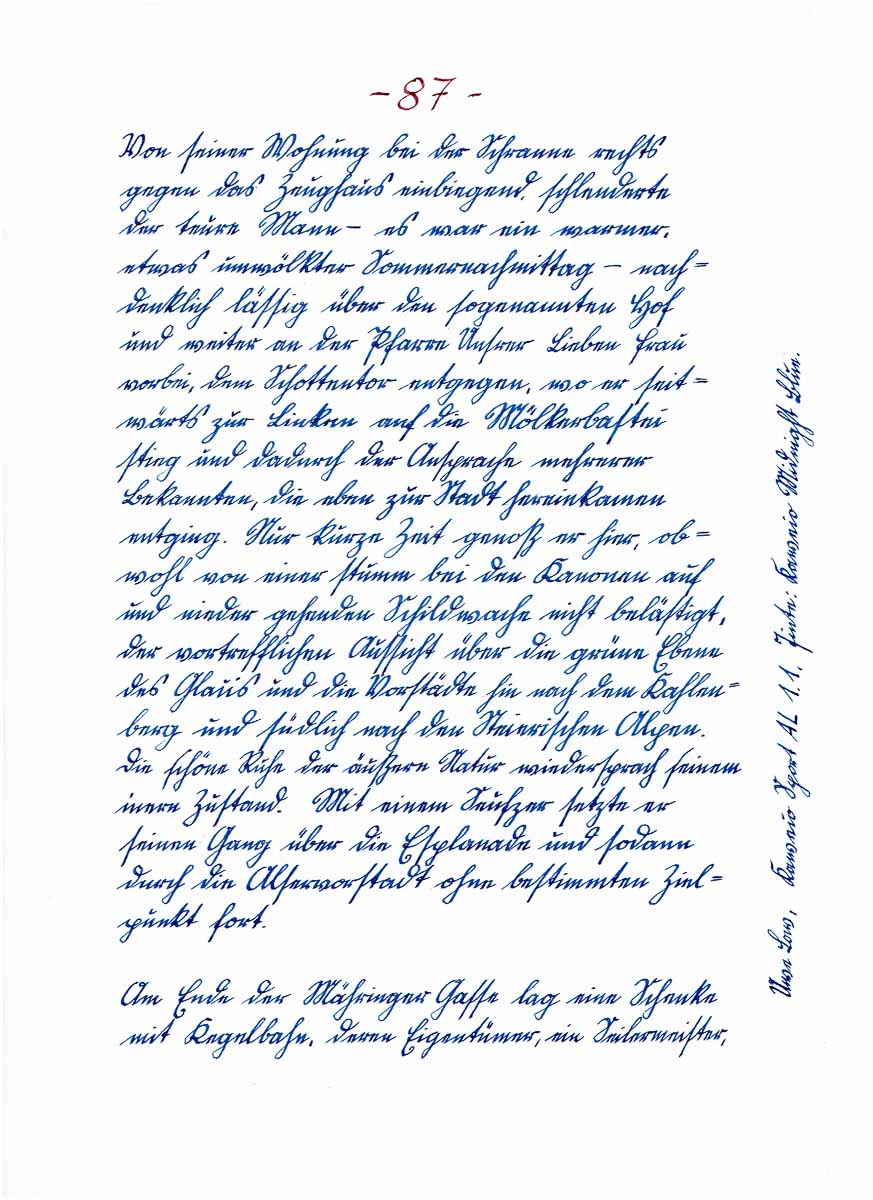 - 87 -
Von seiner Wohnung bei der Schranne rechts
gegen das Zeughaus einbiegend, schlenderte
der teure Mann – es war ein warmer,
etwas umwölkter Sommernachmittag – nach=
denklich lässig über den sogenannten Hof
und weiter an der Pfarre Unsrer Lieben Frau
vorbei, dem Schottentor entgegen, wo er seit=
wärts zur Linken auf die Mölkerbastei
stieg und dadurch der Ansprache mehrerer
Bekannten, die eben zur Stadt hereinkamen
entging. Nur kurze Zeit genoß er hier, ob=
wohl von einer stumm bei den Kanonen auf
und nieder gehenden Schildwache nicht belästigt,
der vortrefflichen Aussicht über die grüne Ebene
des Glacis und die Vorstädte hin nach dem Kahlen=
berg und südlich nach den Steierischen Alpen.
Die schöne Ruhe der äußern Natur wiedersprach seinem
innern Zustand. Mit einem Seufzer setzte er
seinen Gang über die Esplanade und sodann
durch die Alservorstadt ohne bestimmten Ziel=
punkt fort.
Am Ende der Währinger Gasse lag eine Schenke
mit Kegelbahn, deren Eigentümer, ein Seilermeister,
Kaweco Sport AL 1.1, Tinte: Kaweco Midnight Blue.